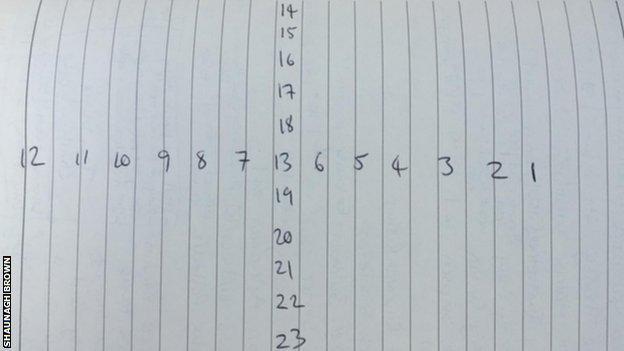 14
15
16
17
18
12 11 10 9 8 7 13 6 5 4 3 2 1
19
20
21
22
23
SHAUNAGH BROWN